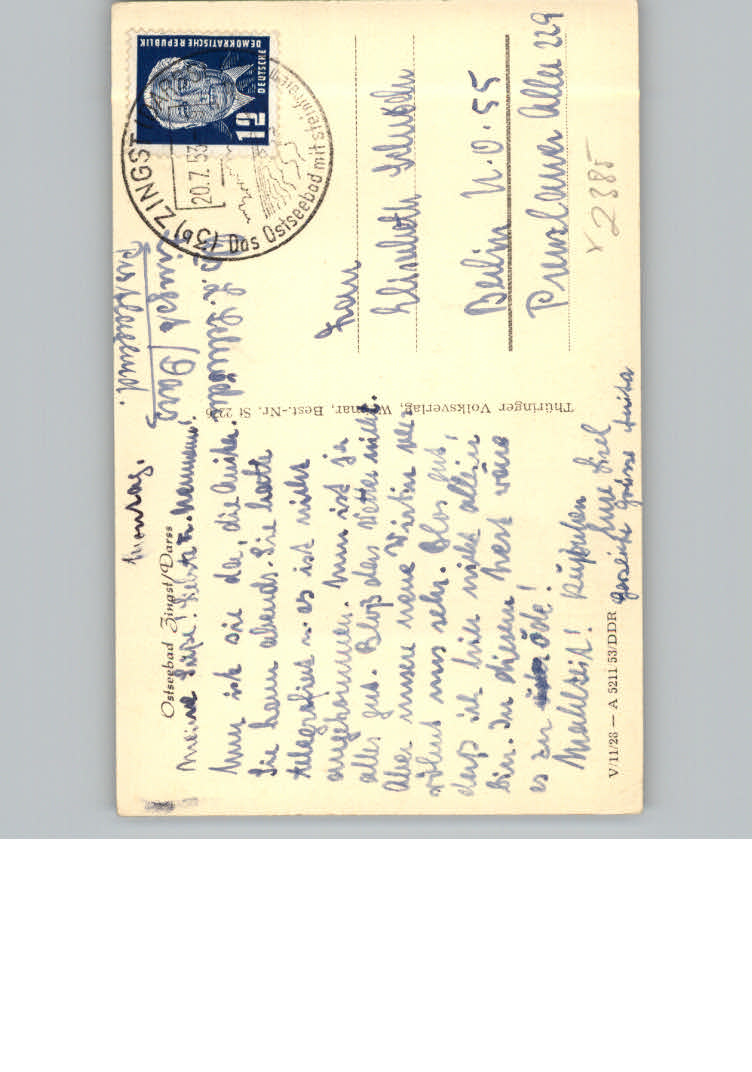 Montag.
Ostseebad Zingst/Darss
Meine Süße! Liebe Fr.
Nun ist sie da, die Anita.
Sie kam abends. Sie hatte
telegrafiert u. es ist nicht
angekommen. Nun ist ja
alles gut. Bloß das Wetter nicht.
Aber unsere neue Wirtin ver-
wöhnt uns sehr. Blos gut,
daß ich hier nicht allein
bin. In diesem Nest wäre
es zu öde!
Mahlzeit! Küßchen
Eure
Herzliche Grüsse Anita
V/11/28 — A 5211 53/DDR
Thüringer Volksverlag, Weimar, Best.-Nr. St 2376
Zingst/Darß
DEUTSCHE
DEMOKRATISCHE REPUBLIK
12
(3b) ZINGST
20.7.53
Das Ostseebad mit
Frau
Elisabeth
Berlin N.O.55
Prenzlauer Allee 229
2385